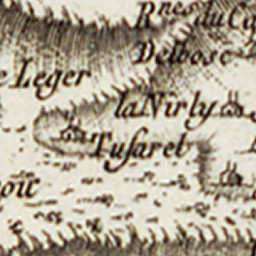 R.nes du Ca
Delbosc
e Leger
la Nirly
Tusaret
oic